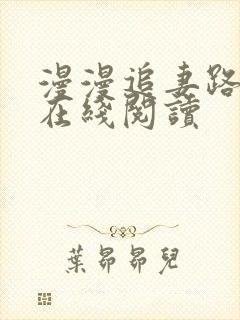 漫漫追妻路
在綫閱讀
葉昴昴兒